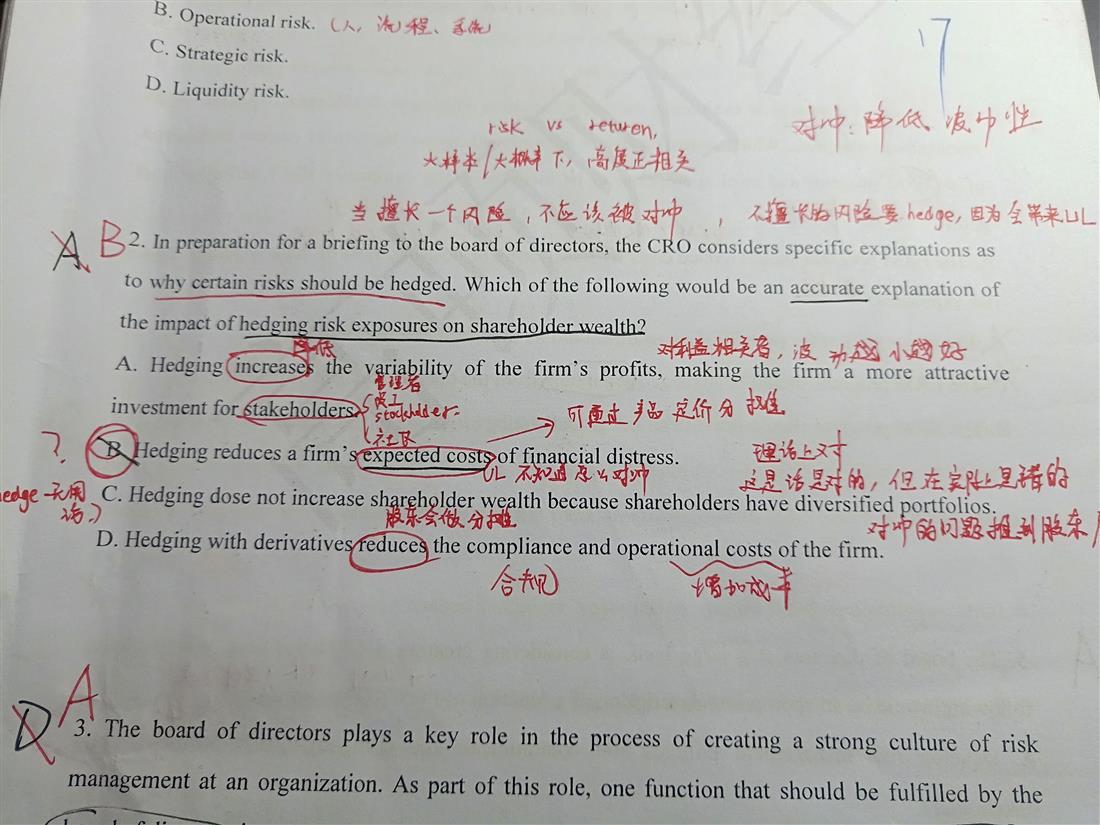 B. Operational risk. (人, 流程、系统)
17
C. Strategic risk.
D. Liquidity risk.
对冲: 降低波动性
risk vs return,
大样本/大概率下, 高度正相关
当擅长一个风险, 不应该被对冲, 不擅长的风险要hedge, 因为会带来UL
A B 2. In preparation for a briefing to the board of directors, the CRO considers specific explanations as
to why certain risks should be hedged. Which of the following would be an accurate explanation of
the impact of hedging risk exposures on shareholder wealth?
降低
对利益相关者, 波动越小越好
A. Hedging increases the variability of the firm's profits, making the firm a more attractive
管理者
investment for stakeholders.
员工
stockholder.
社区
可通过产品定价分摊
? B. Hedging reduces a firm's expected costs of financial distress.
理论上对
UL 不知道怎么对冲
这是话是对的, 但在实际上是错的
hedge 无用
C. Hedging dose not increase shareholder wealth because shareholders have diversified portfolios.
股东会做分摊
对冲的问题推到股东
D. Hedging with derivatives reduces the compliance and operational costs of the firm.
合规
增加成本
D A
3. The board of directors plays a key role in the process of creating a strong culture of risk
management at an organization. As part of this role, one function that should be fulfilled by the